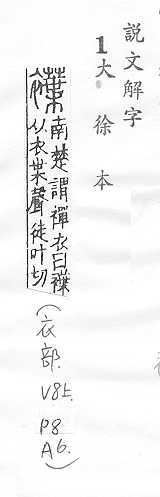 說文解字
1大徐本
南楚謂襌衣曰褋
从衣枼聲徒叶切
(衣部.
V85.
P8
A6.)